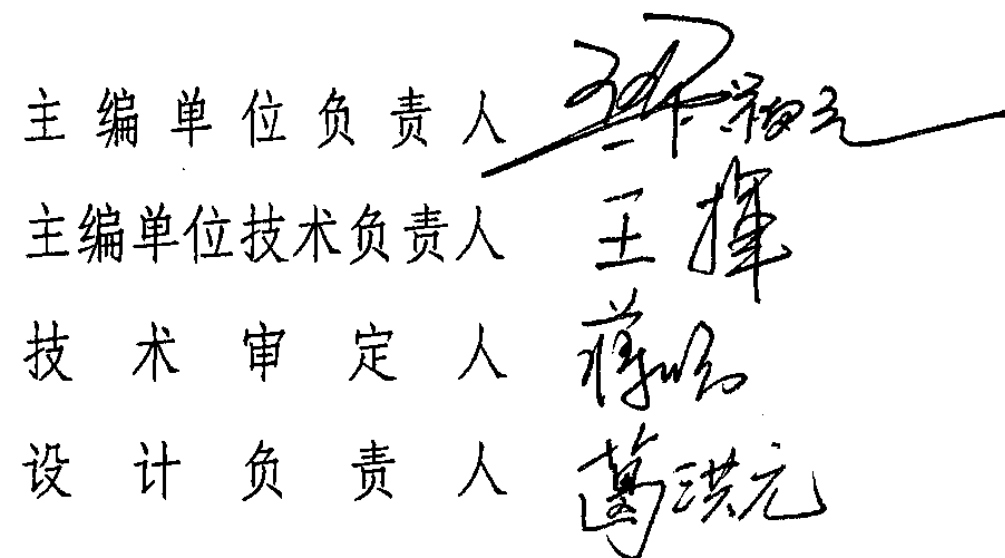 主编单位负责人
主编单位技术负责人 王揮
技术审定人
设计负责人 葛洪元